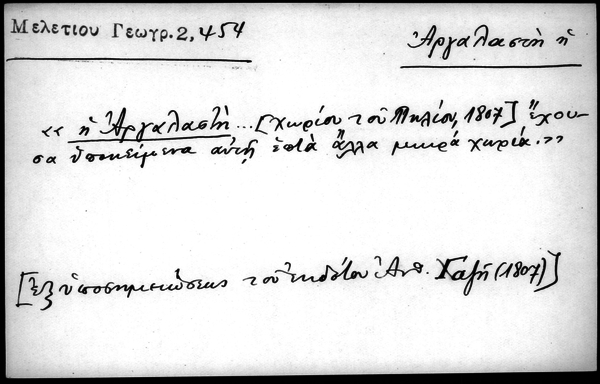 Μελετίου Γεωγρ. 2, 454
Ἀργαλαστὴ ἡ
« ἡ Ἀργαλαστὴ... [χωρίον τοῦ Πηλίου, 1807] ἔχου-
σα ὑποκείμενα αὐτῇ ἑπτὰ ἄλλα μικρὰ χωρία.»
[ἐξ ὑποσημειώσεως τοῦ ἐκδότου Ἀνθ. Γαζῆ (1807)]